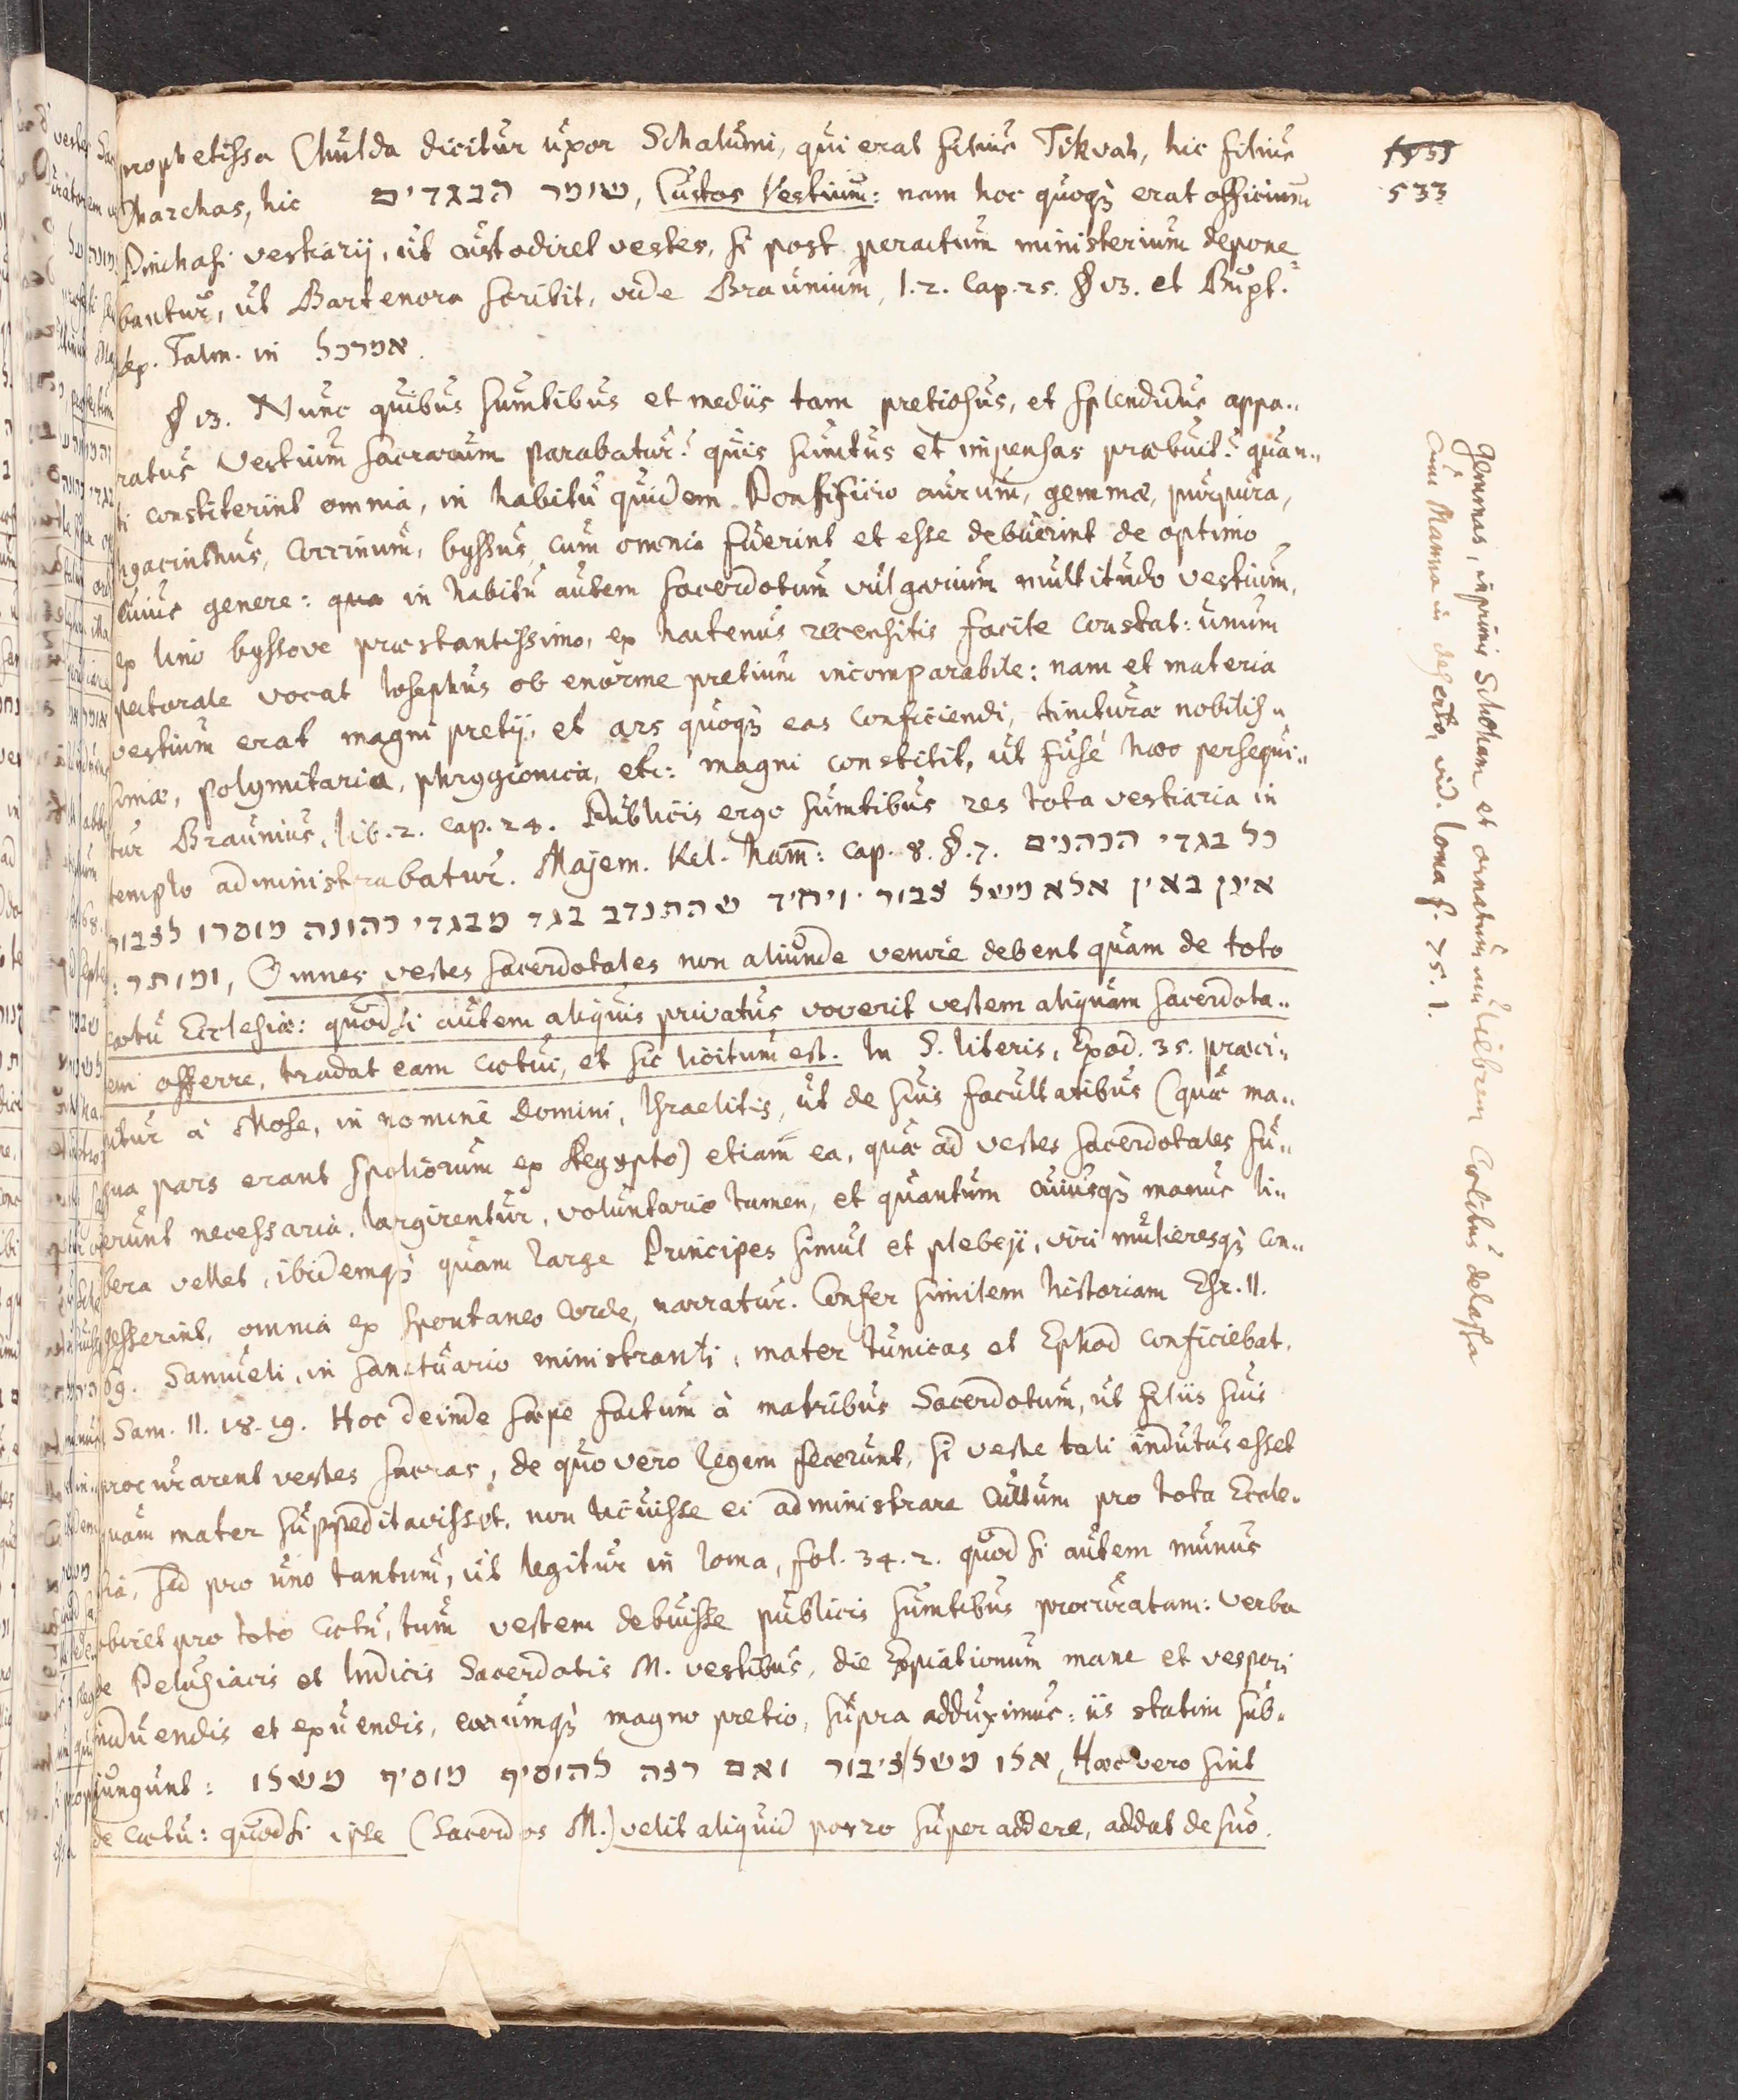 prophetissa Chulda dicitur uxor Schalumi, qui erat filius Tikvah, hic filius
Charchas, hic שומר הבגדים, Custos Vestium: nam hoc quoqꝫ erat officium
Pinchasi vestiarij, ut custodiret vestes, si post peractum ministerium depone⸗
bantur, ut Bartenora scribit, vide Braunium, l. 2. Cap. 25. § 13. et Buxt.
Lex. Talm. in אמרכל.
§ 13. Nunc quibus sumtibus et mediis tam pretiosus, et splendidus appa⸗
ratus Vestium sacrarum parabatur? quis sumtus et impensas præbuit? quan⸗
ti constiterint omnia, in habitu quidem Pontificio aurum, gemmæ, purpura,
hyacinthus, coccinum, byssus, cum omnia fuerint et esse debuerint de optimo
cuius genere: qua in habitu autem sacerdotum vulgarium multitudo vestium,
ex lino byssove præstantissimo, ex hactenus recensitis facile constat: unum
pectorale vocat Iosephus ob enorme pretium incomparabile: nam et materia
vestium erat magni pretij, et ars quoqꝫ eas conficiendi, tincturæ nobilis⸗
simæ, polymitaria, phrygionica, etc: magni constitit, ut fusé hæc persequi⸗
tur Braunius, lib. 2. cap. 24. Publicis ergo sumtibus res tota vestiaria in
templo administrabatur. Majem. Kel. Ham̄: cap. 8. §. 7. כל בגדי הכהנים
אינן באין אלא משל צבור ויחיד שהתנדב בגד מבגדי כהונה מוסרו לצבור
ומותר:, Omnes vestes sacerdotales non aliunde venire debent quam de toto
cœtu Ecclesiæ: quodsi autem aliquis privatus voverit vestem aliquam sacerdota⸗
lem offerre, tradat eam cœtui, et sic licitum est. In S. literis, Exod. 35. præci⸗
pitur à Mose, in nomine Domini, Israelitis, ut de suis facultatibus (quæ ma⸗
gna pars erant spoliorum ex Aegypto) etiam ea, quæ ad vestes sacerdotales fu⸗
erunt necessaria, largirentur, voluntario tamen, et quantum cuiusqꝫ manus li⸗
bera vellet, ibidemqꝫ quam large Principes simul et plebeji, viri mulieresqꝫ con⸗
gesserint, omnia ex spontaneo corde, narratur. Confer similem historiam Esr. II.
69. Samueli, in sanctuario ministranti, mater tunicas et Ephod conficiebat.
Sam. II. 18. 19. Hoc deinde sæpe factum à matribus Sacerdotum, ut filiis suis
procurarent vestes sacras, de quo vero legem fecerunt, si veste tali indutus esset
quam mater suppeditavisset, non licuisse ei administrare cultum pro tota Eccle⸗
sia, sed pro uno tantum, ut legitur in Ioma, fol. 34. 2. quod si autem munus
obiret pro toto cœtu, tum vestem debuisse publicis sumtibus procuratam: verba
de Pelusiacis et Indicis Sacerdotis M. vestibus, die Expiationum mane et vesperi
induendis et exuendis, earumqꝫ magno pretio, supra adduximus: iis statim sub⸗
jungunt: אלו משל ציבור ואם רצה להוסיף מוסיף משלו, Hæc vero sint
de cœtu: quodsi ipse (Sacerdos M.) velit aliquid porro superaddere, addat de suo.
533
Gemmas, inprimis Schoham et ornatum muliebrem cœlitus delapsa
cum Manna in deserto, vid. Ioma f. 75. 1.